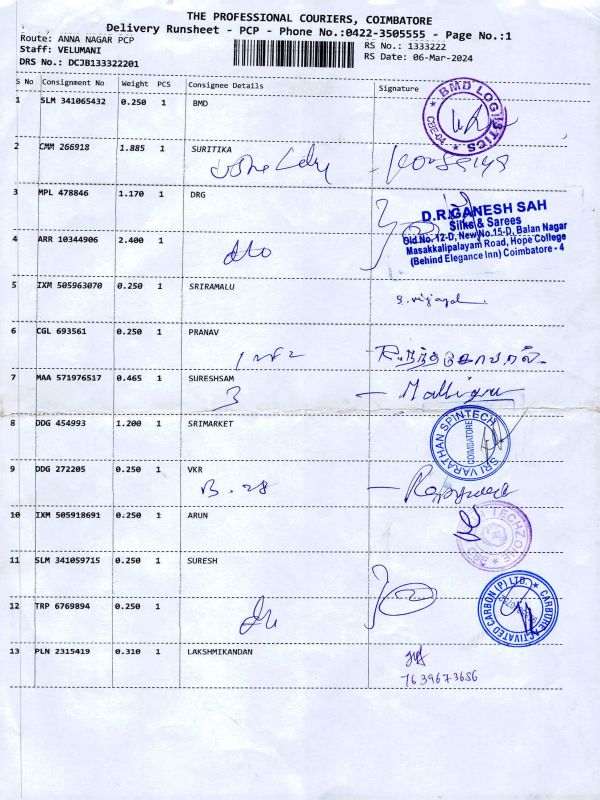 THE PROFESSIONAL COURIERS, COIMBATORE
Delivery Runsheet - PCP - Phone No.:0422-3505555 - Page No.:1
Route: ANNA NAGAR PCP
RS No.: 1333222
Staff: VELUMANI
RS Date: 06-Mar-2024
DRS No.: DCJB133322201
S No Consignment No Weight PCS Consignee Details Signature
1 SLM 341065432 0.250 1 BMD
BMD LOGISTICS
CBE-04
2 CMM 266918 1.885 1 SURITIKA
3 MPL 478846 1.170 1 DRG
D.R.GANESH SAH
Silks & Sarees
Old No. 12-D, New No.15-D, Balan Nagar
Masakkalipalayam Road, Hope College
(Behind Elegance Inn) Coimbatore - 4
4 ARR 10344906 2.400 1
5 IXM 505963070 0.250 1 SRIRAMALU
S. Vijayal
6 CGL 693561 0.250 1 PRANAV
7 MAA 571976517 0.465 1 SURESHSAM
3
8 DDG 454993 1.200 1 SRIMARKET
SRI VARATHAN SPINTECH
COIMBATORE
9 DDG 272205 0.250 1 VKR
10 IXM 505918691 0.250 1 ARUN
TECHZONE
CBE
11 SLM 341059715 0.250 1 SURESH
12 TRP 6769894 0.250 1
CARBURE ACTIVATED CARBON (P) LTD.
13 PLN 2315419 0.310 1 LAKSHMIKANDAN
7639673686